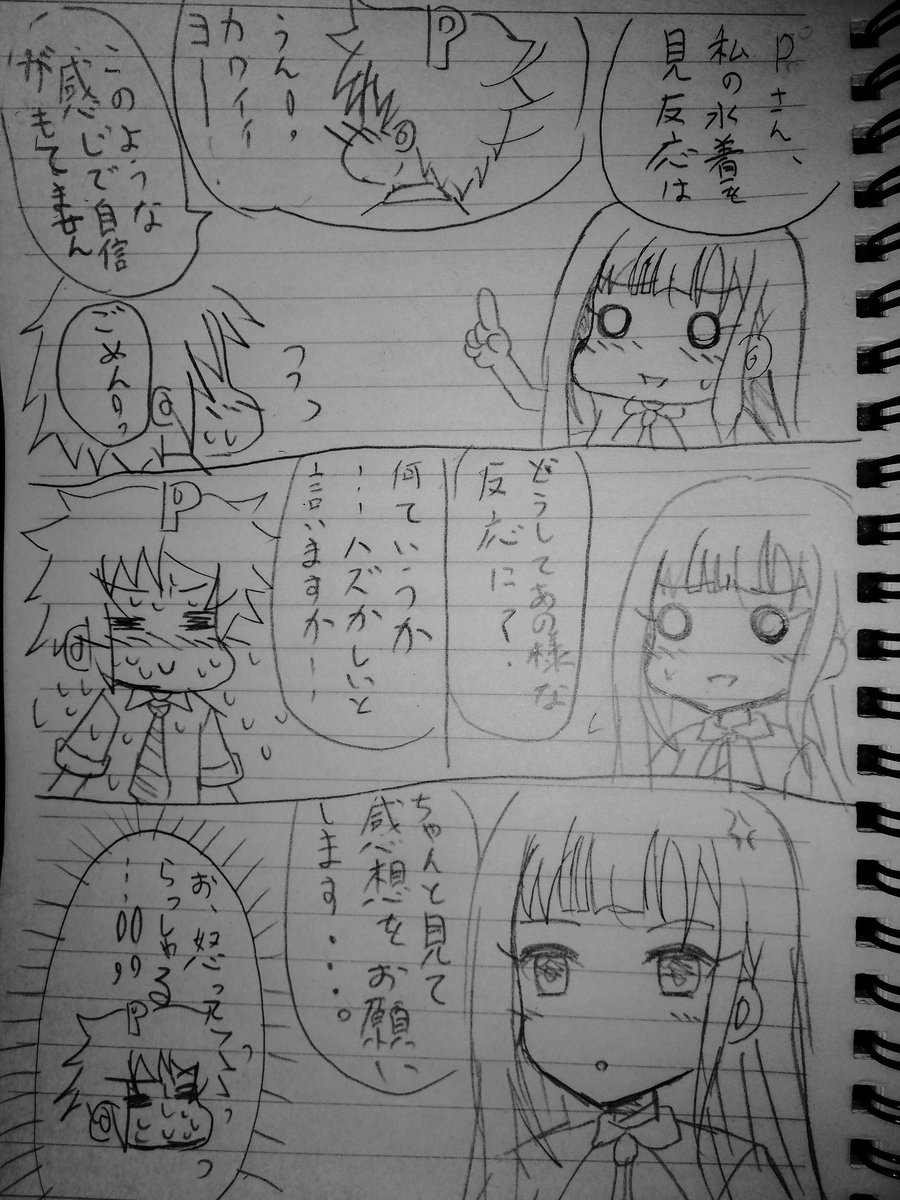 Pさん、
私の水着を
見反応は
P
うんー。
カワイイ
ヨー
このような
感じで自信
がもてません
ごめんっ
っっ
どうしてあの様な
反応に?
何ていうか
…ハズかしいと
言いますか…
P
ちゃんと見て
感想をお願い
します・・・。
お、怒って
らっしゃる
…!!
P